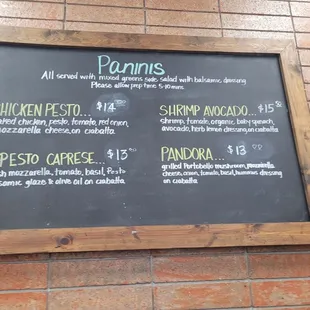 Paninis
All served with mixed greens side salad with balsamic dressing
Please allow prep time 5-10 mins.
CHICKEN PESTO... $14
chicken, pesto, tomato, red onion,
mozzarella cheese, on ciabatta
PESTO CAPRESE... $13
mozzarella, tomato, basil, Pesto
glaze & olive oil on ciabatta
SHRIMP AVOCADO... $15
shrimp, tomato, organic baby spinach,
avocado, herb lemon dressing, on ciabatta
PANDORA... $13
grilled Portobello mushroom, mozzarella
cheese, onion, tomato, basil, hummus dressing
on ciabatta